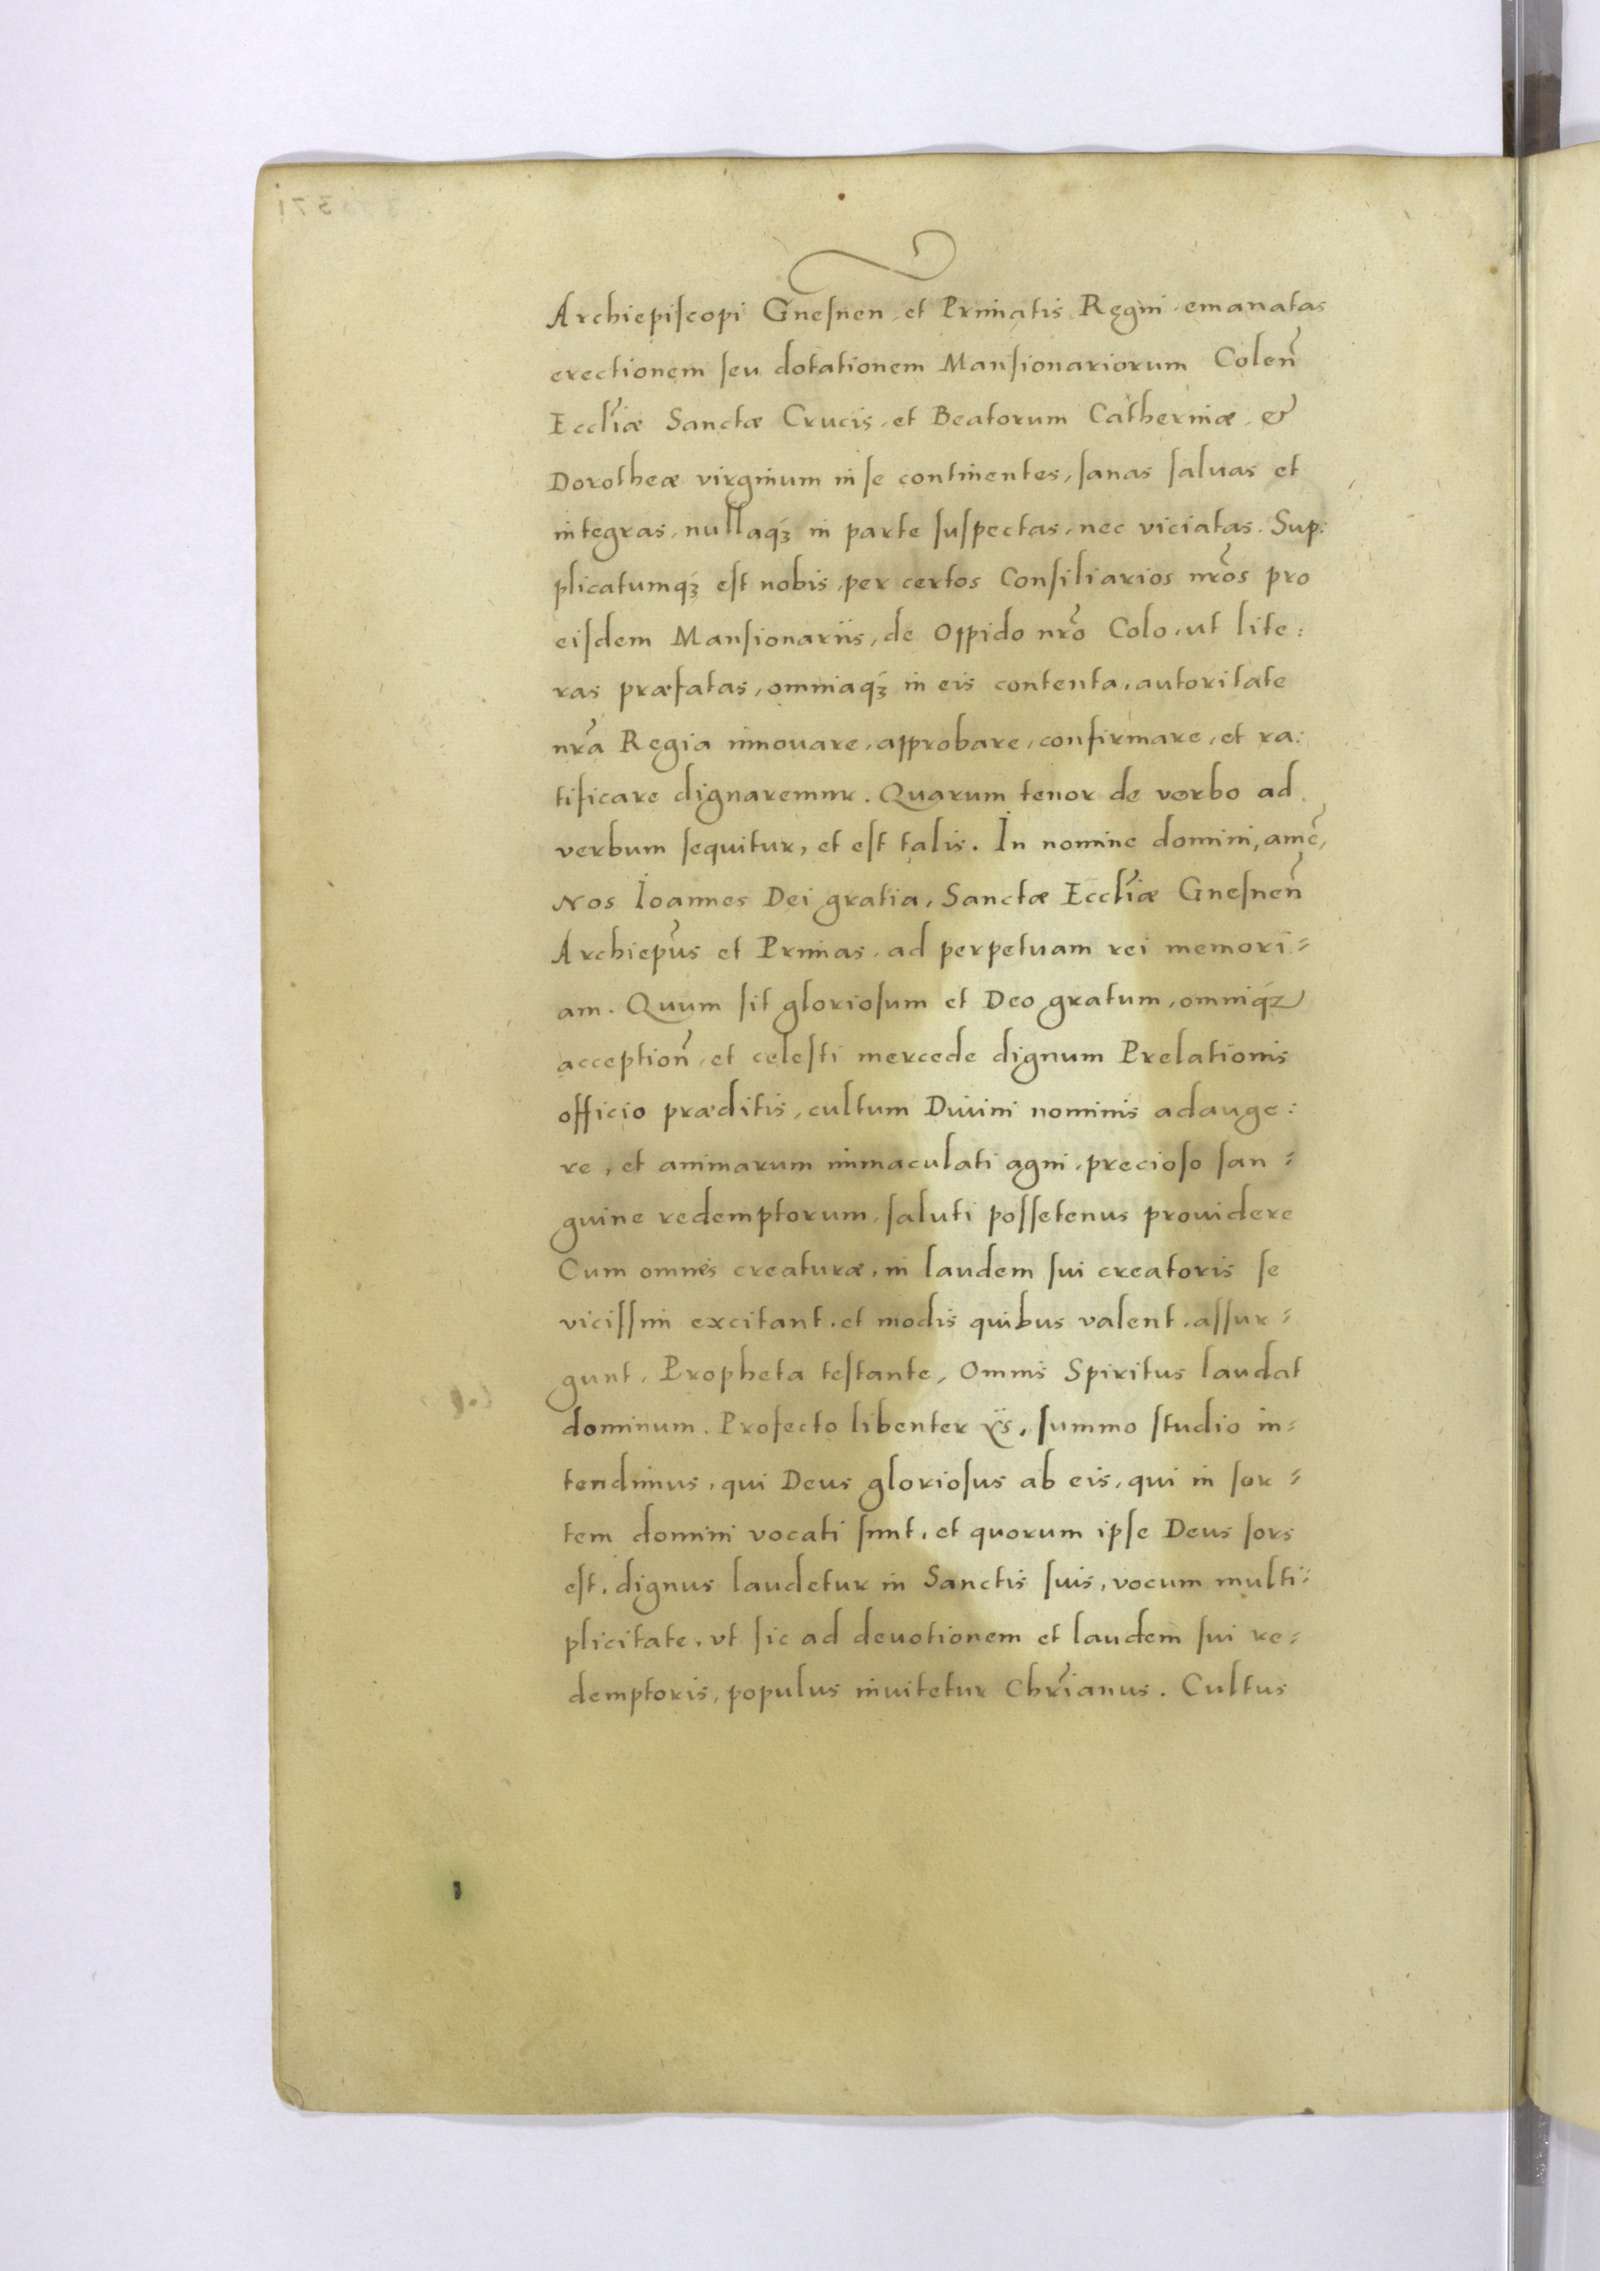 Archiepiſcopi Gneſnen, et Primatis Regni, emanatas
erectionem ſeu dotationem Manſionariorum Coleñ
Eccl̃iæ Sanctæ Crucis, et Beatorum Catherinæ, &
Dorotheæ virginum in ſe continentes, ſanas ſaluas et
integras, nullaqꝫ in parte ſuſpectas, nec viciatas. Sup:
plicatumqꝫ eſt nobis, per certos Conſiliarios nr̃os pro
eiſdem Manſionariis, de Oppido nr̃o Colo, ut lite:
ras præfatas, omniaqꝫ in eis contenta, autoritate
nr̃a Regia innouare, approbare, confirmare, et ra:
tificare dignaremur. Quarum tenor de verbo ad
verbum ſequitur, et eſt talis. In nomine domini, amẽ,
Nos Ioannes Dei gratia, Sanctæ Eccl̃iæ Gneſneñ
Archiep̃us et Primas, ad perpetuam rei memori=
am. Quum ſit glorioſum et Deo gratum, omniqꝫ
acceptioñ, et celeſti mercede dignum Prelationis
officio præditis, cultum Diuini nominis adauge:
re, et animarum immaculati agni, precioſo ſan=
guine redemptorum, ſaluti poſſetenus prouidere
Cum omnes creaturæ, in laudem ſui creatoris ſe
viciſſim excitant, et modis quibus valent, aſſur=
gunt, Propheta teſtante, Omnis Spiritus laudat
dominum. Profecto libenter ſummo ſtudio in=
tendimus, qui Deus glorioſus ab eis, qui in ſor=
tem domini vocati ſunt, et quorum ipſe Deus ſors
eſt, dignus laudetur in Sanctis ſuis, vocum multi=
plicitate, vt ſic ad deuotionem et laudem ſui re=
demptoris, populus inuitetur Chr̃ianus. Cultus